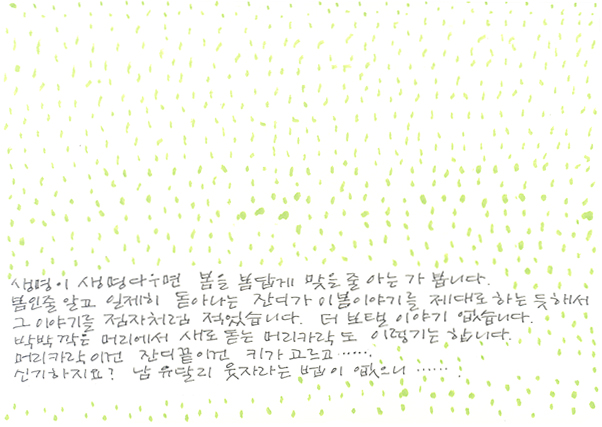 생명이 생명다우면 봄을 봄답게 맞을 줄 아는가 봅니다.
봄인줄 알고 일제히 돋아나는 잔디가 이봄이야기를 제대로 하는 듯해서
그 이야기를 점자처럼 적었습니다. 더 보탤 이야기 없습니다.
박박 깎은 머리에서 새로 돋는 머리카락도 이렇기는 합니다.
머리카락이건 잔디끝이건 키가 고르고 ……
신기하지요? 남 유달리 웃자라는 법이 없으니 …… .